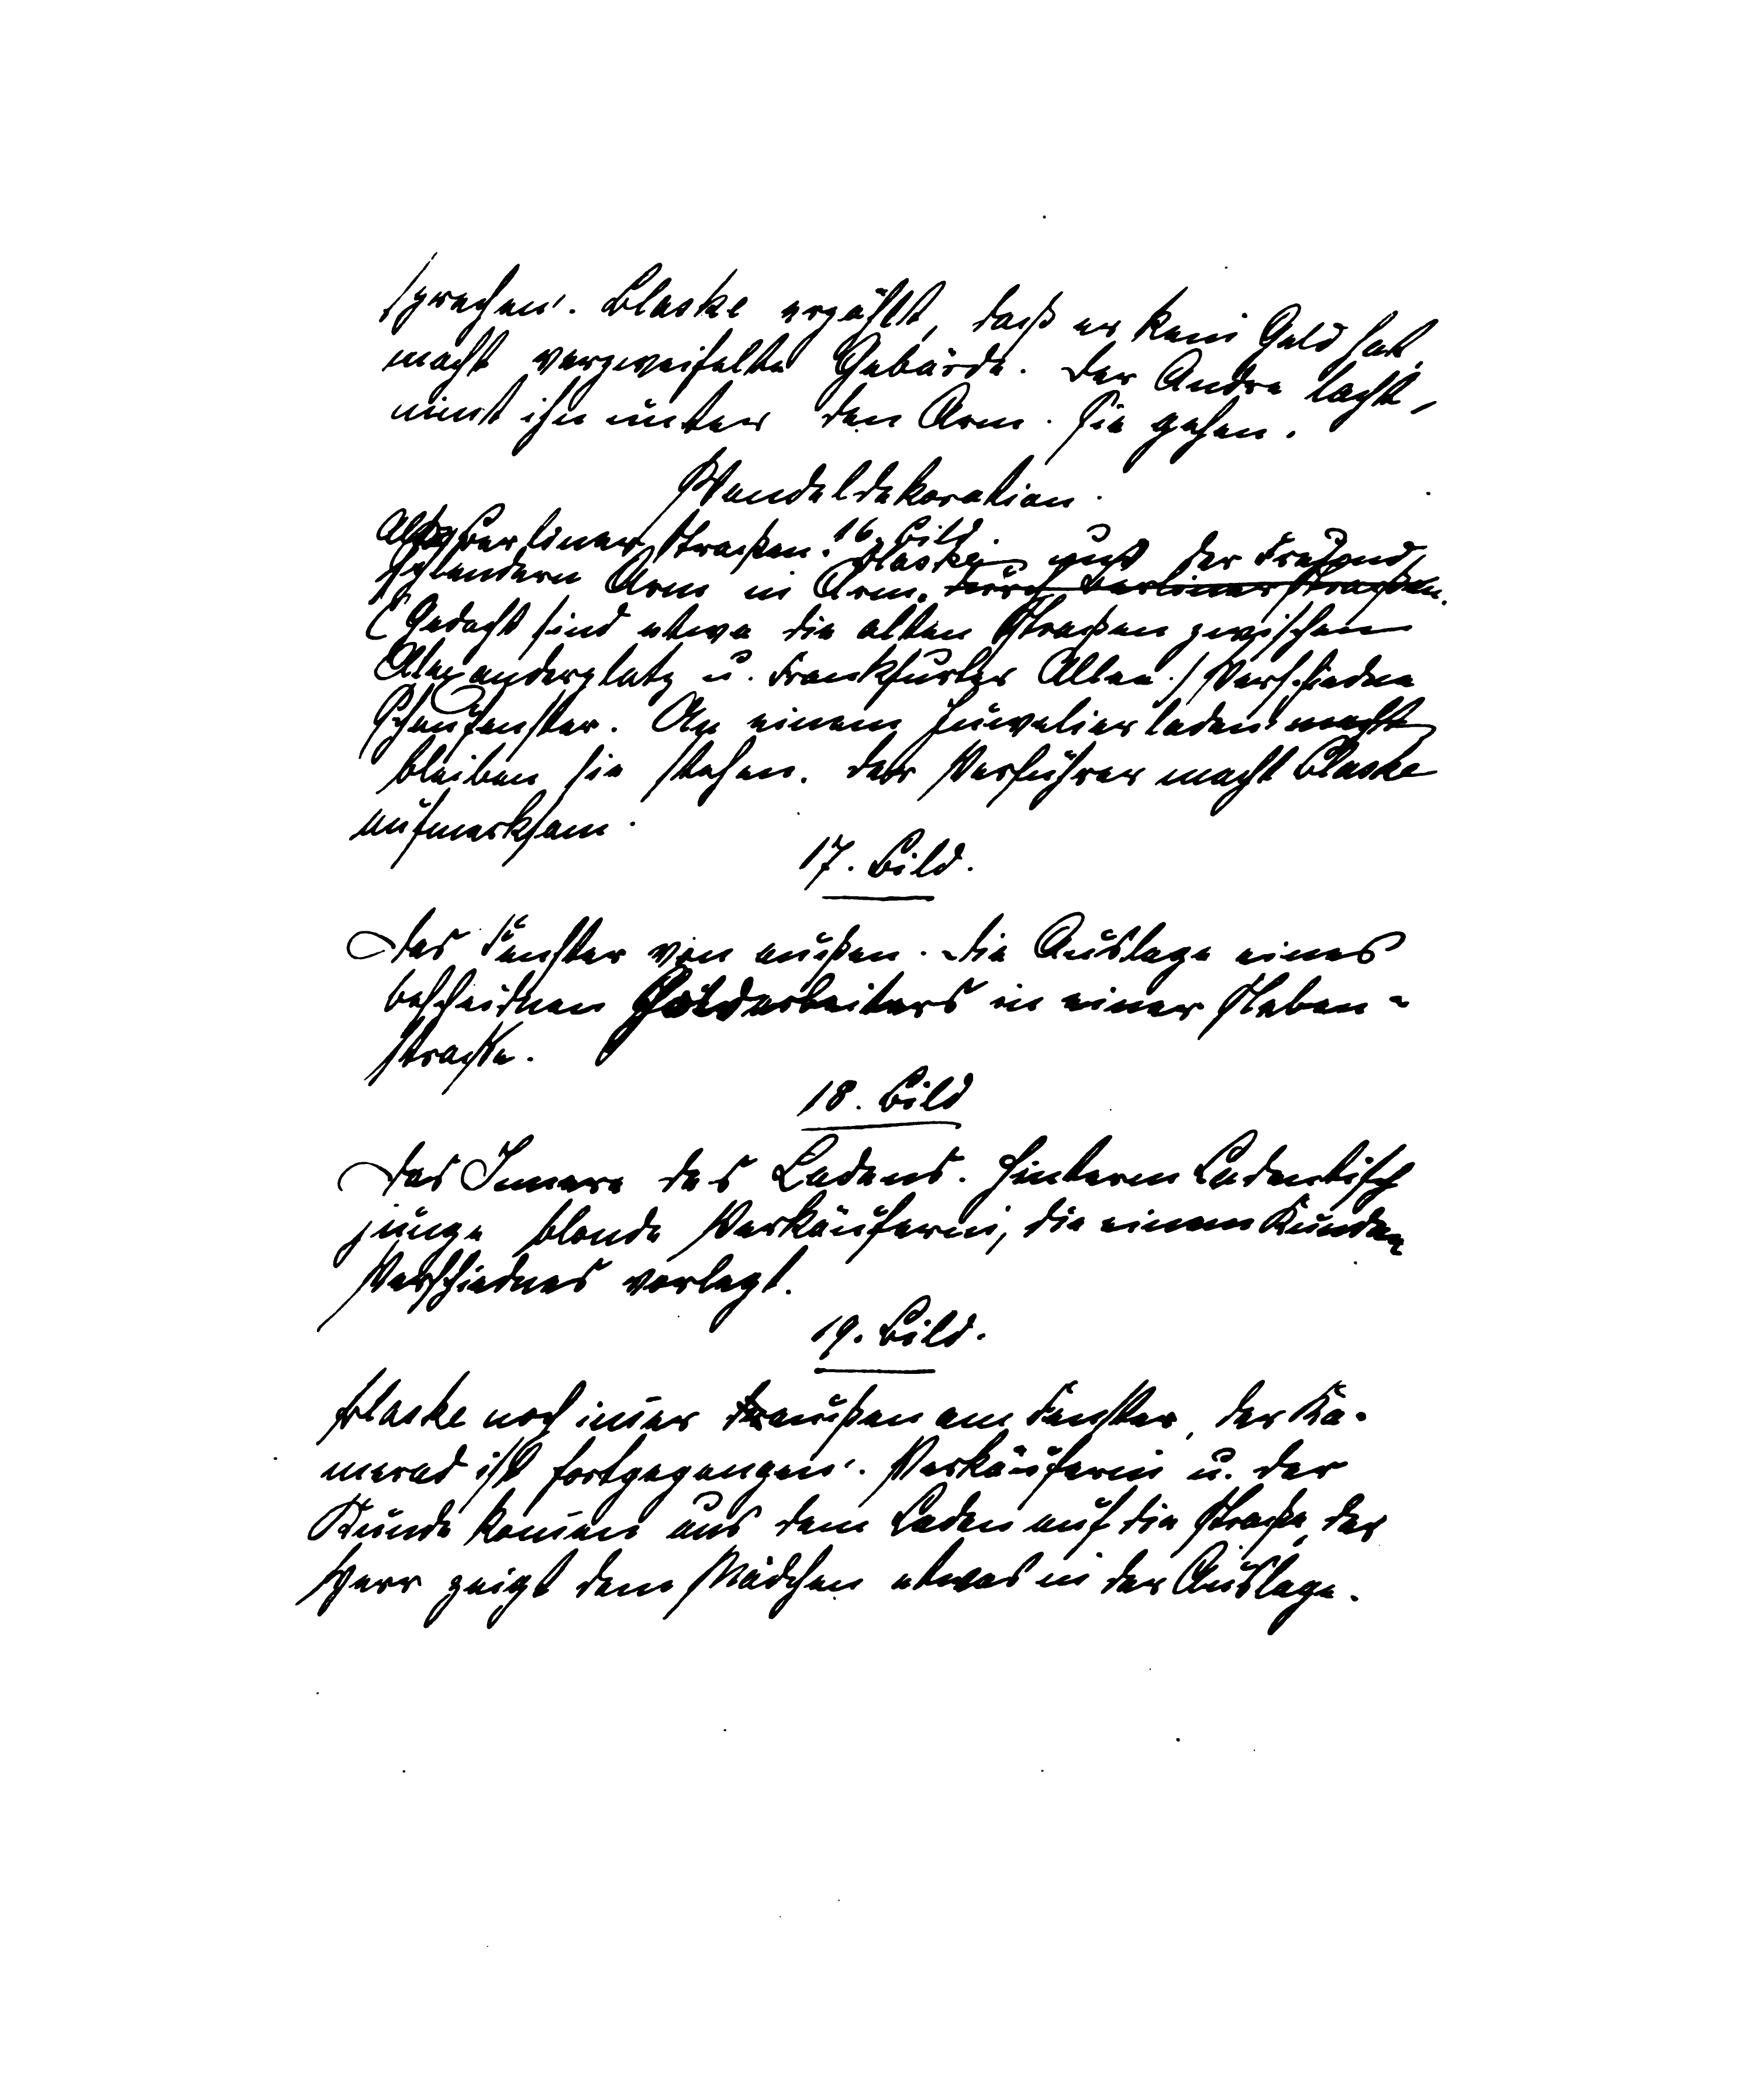 sprechen. Claske erzählt, daß er kein Geld hat,
macht verzweifelte Gebärde. Der Andre lacht,
nimt ihn unter den Arm. Sie gehen.
Wandeldekoration.
16. Bild.
Alte Berliner Straßen. Claske und der Freund
schlendern Arm in Arm. durch Berliner Straßen.
(Gedacht sind etwa die alten Straßen zwischen
Alexanderplatz u. Frankfurter Allee.) Verschiedne
Schaufenster. An einem Juwelierladen macht
bleiben sie stehen. Der Verführer macht Claske
aufmerksam.
17. Bild.
Das Fenster von außen. Die Auslage eines
bescheidnen Goldarbeiters in einer Neben-
straße.
18. Bild
Das Innere des Ladens. Hinterm Ladentisch
junge blonde Verkäuferin, die einem Kunden
Verschiednes vorlegt.
19. Bild.
Claske noch imer draußen am Fenster, der Ka-
merad ist fortgegangen. Verkäuferin u. der
Kunde komen aus dem Laden auf die Straße, der
Herr zeigt dem Mädchen etwas in der Auslage.